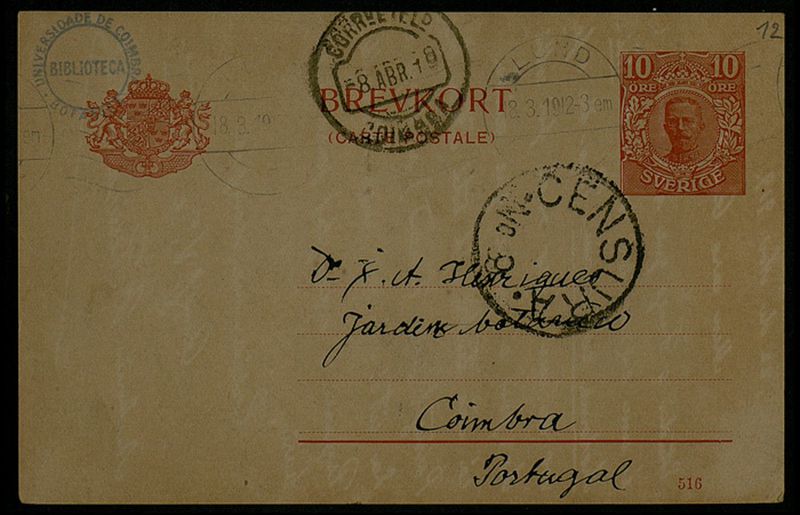 12
UNIVERSIDADE DE COIMBRA
BIBLIOTECA
CORRO TELO
8 ABR. 18
COIMBRA
LUND
18.3.19 2-3 em
18.3.19
BREVKORT
(CARTE POSTALE)
10 10
ÖRE ÖRE
SVERIGE
CENSURA
No 8
Dr J. A. Henriques
Jardim botanico
Coimbra
Portugal
516